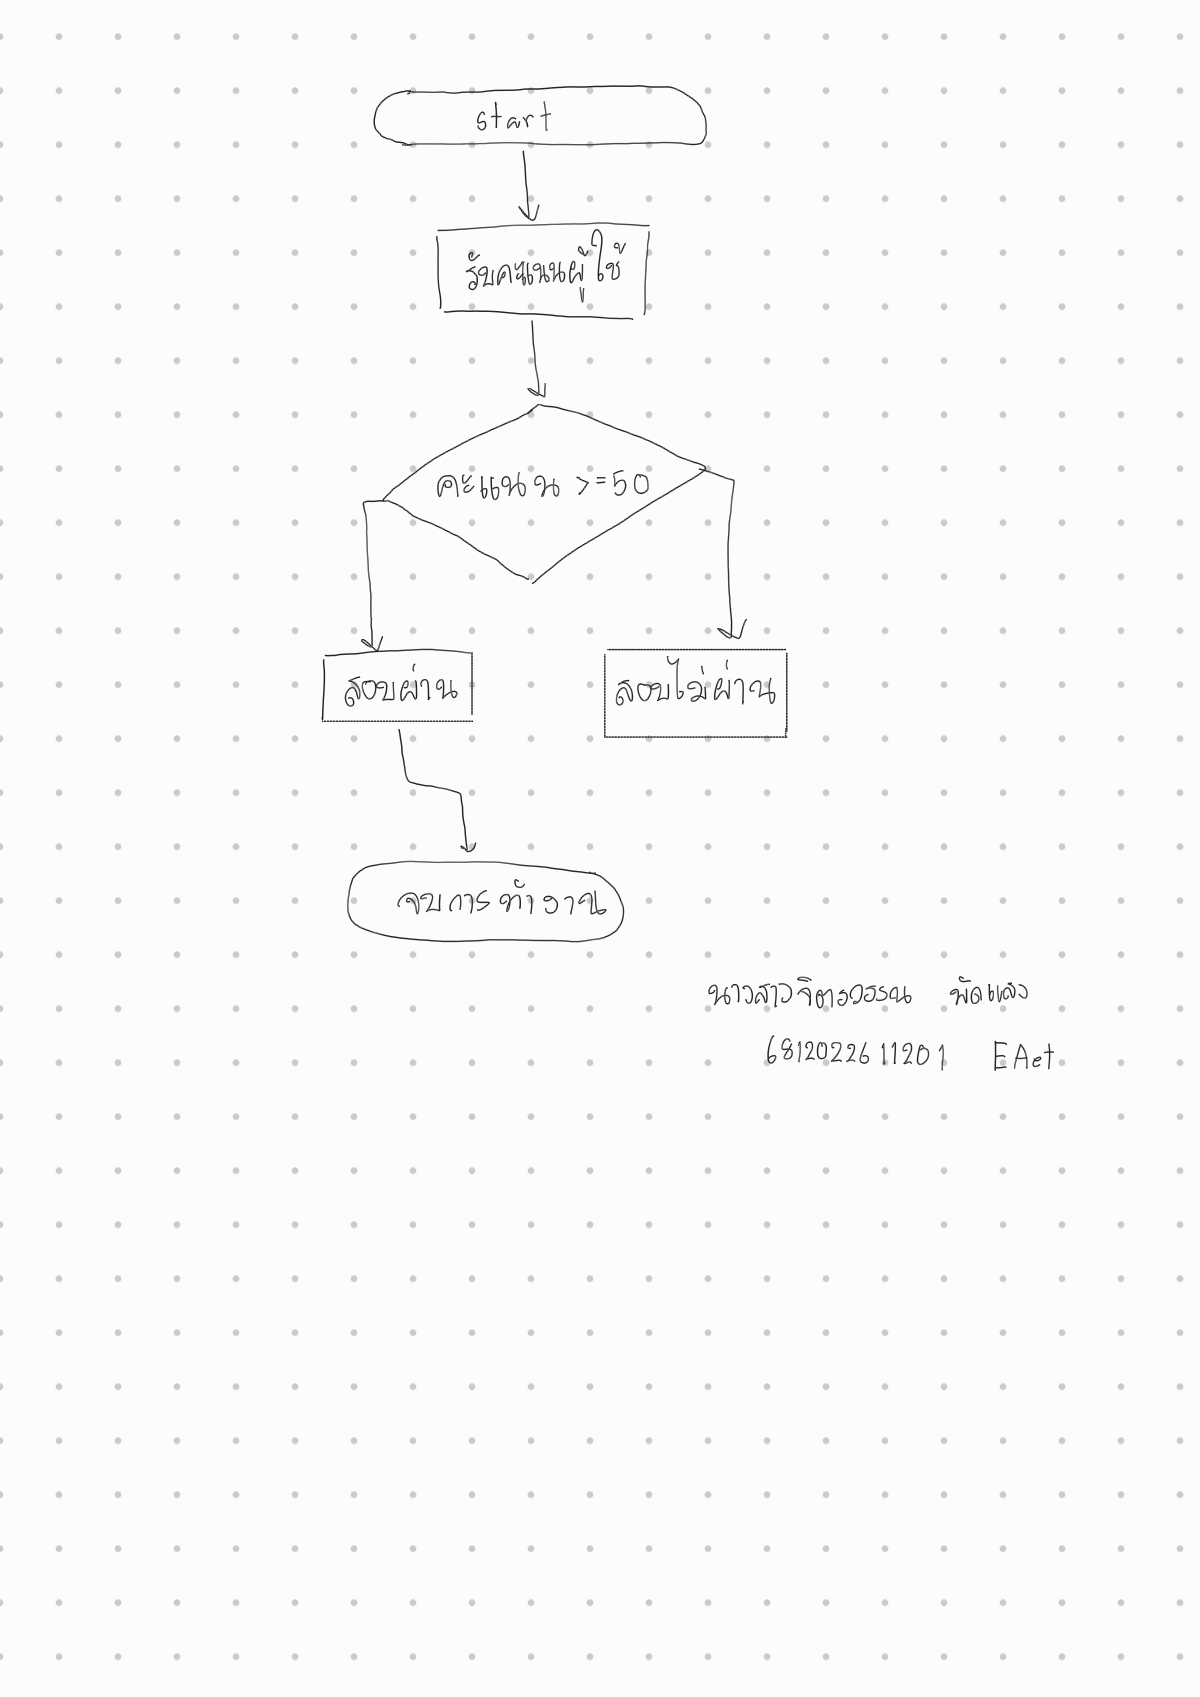 start
รับคะแนนผู้ใช้
คะแนน >=50
สอบผ่าน
สอบไม่ผ่าน
จบการทำงาน
นางสาวจิตรวรรณ พัดแสง
681202261201 EAet